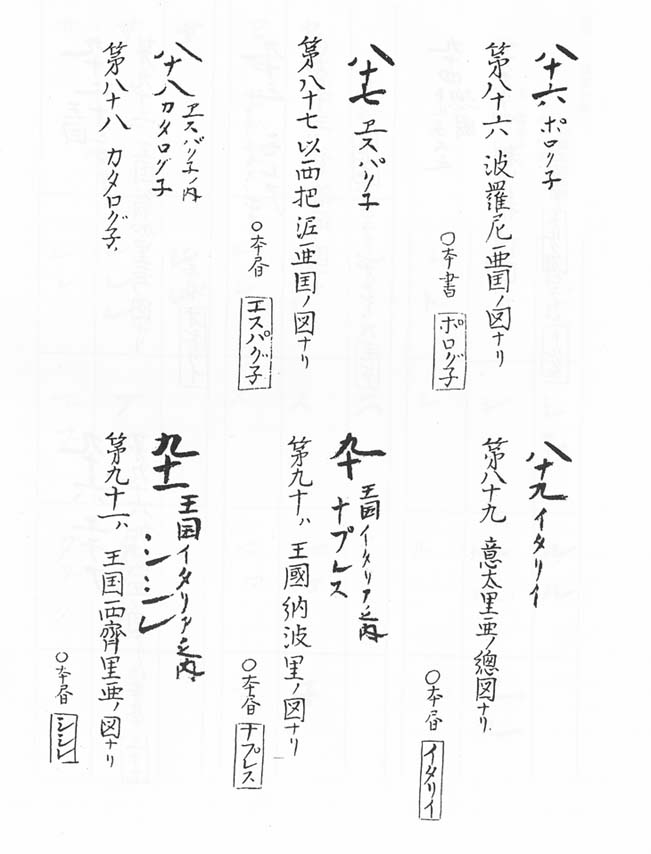 八十六 ポロリ子
第八十六 波羅尼亜国ノ図ナリ
〇本書 ポログ子
八十七 ヱスパリ子
第八十七 以西把泥亜国ノ図ナリ
〇本昏 エスパグ子
八十八 ヱスパリ子ノ内
カタログ子
第八十八 カタログ子
八十九 イタリイ
第八十九 意太里亜ノ總図ナリ
〇本昏 イタリイ
九十 王国イタリア之内
ナプレス
第九十ハ 王國納波里ノ図ナリ
〇本昏 ナプレス
九十一 王国イタリア之内
シシレ
第九十一ハ 王国西齊里亜ノ図ナリ
〇本昏 シシレ